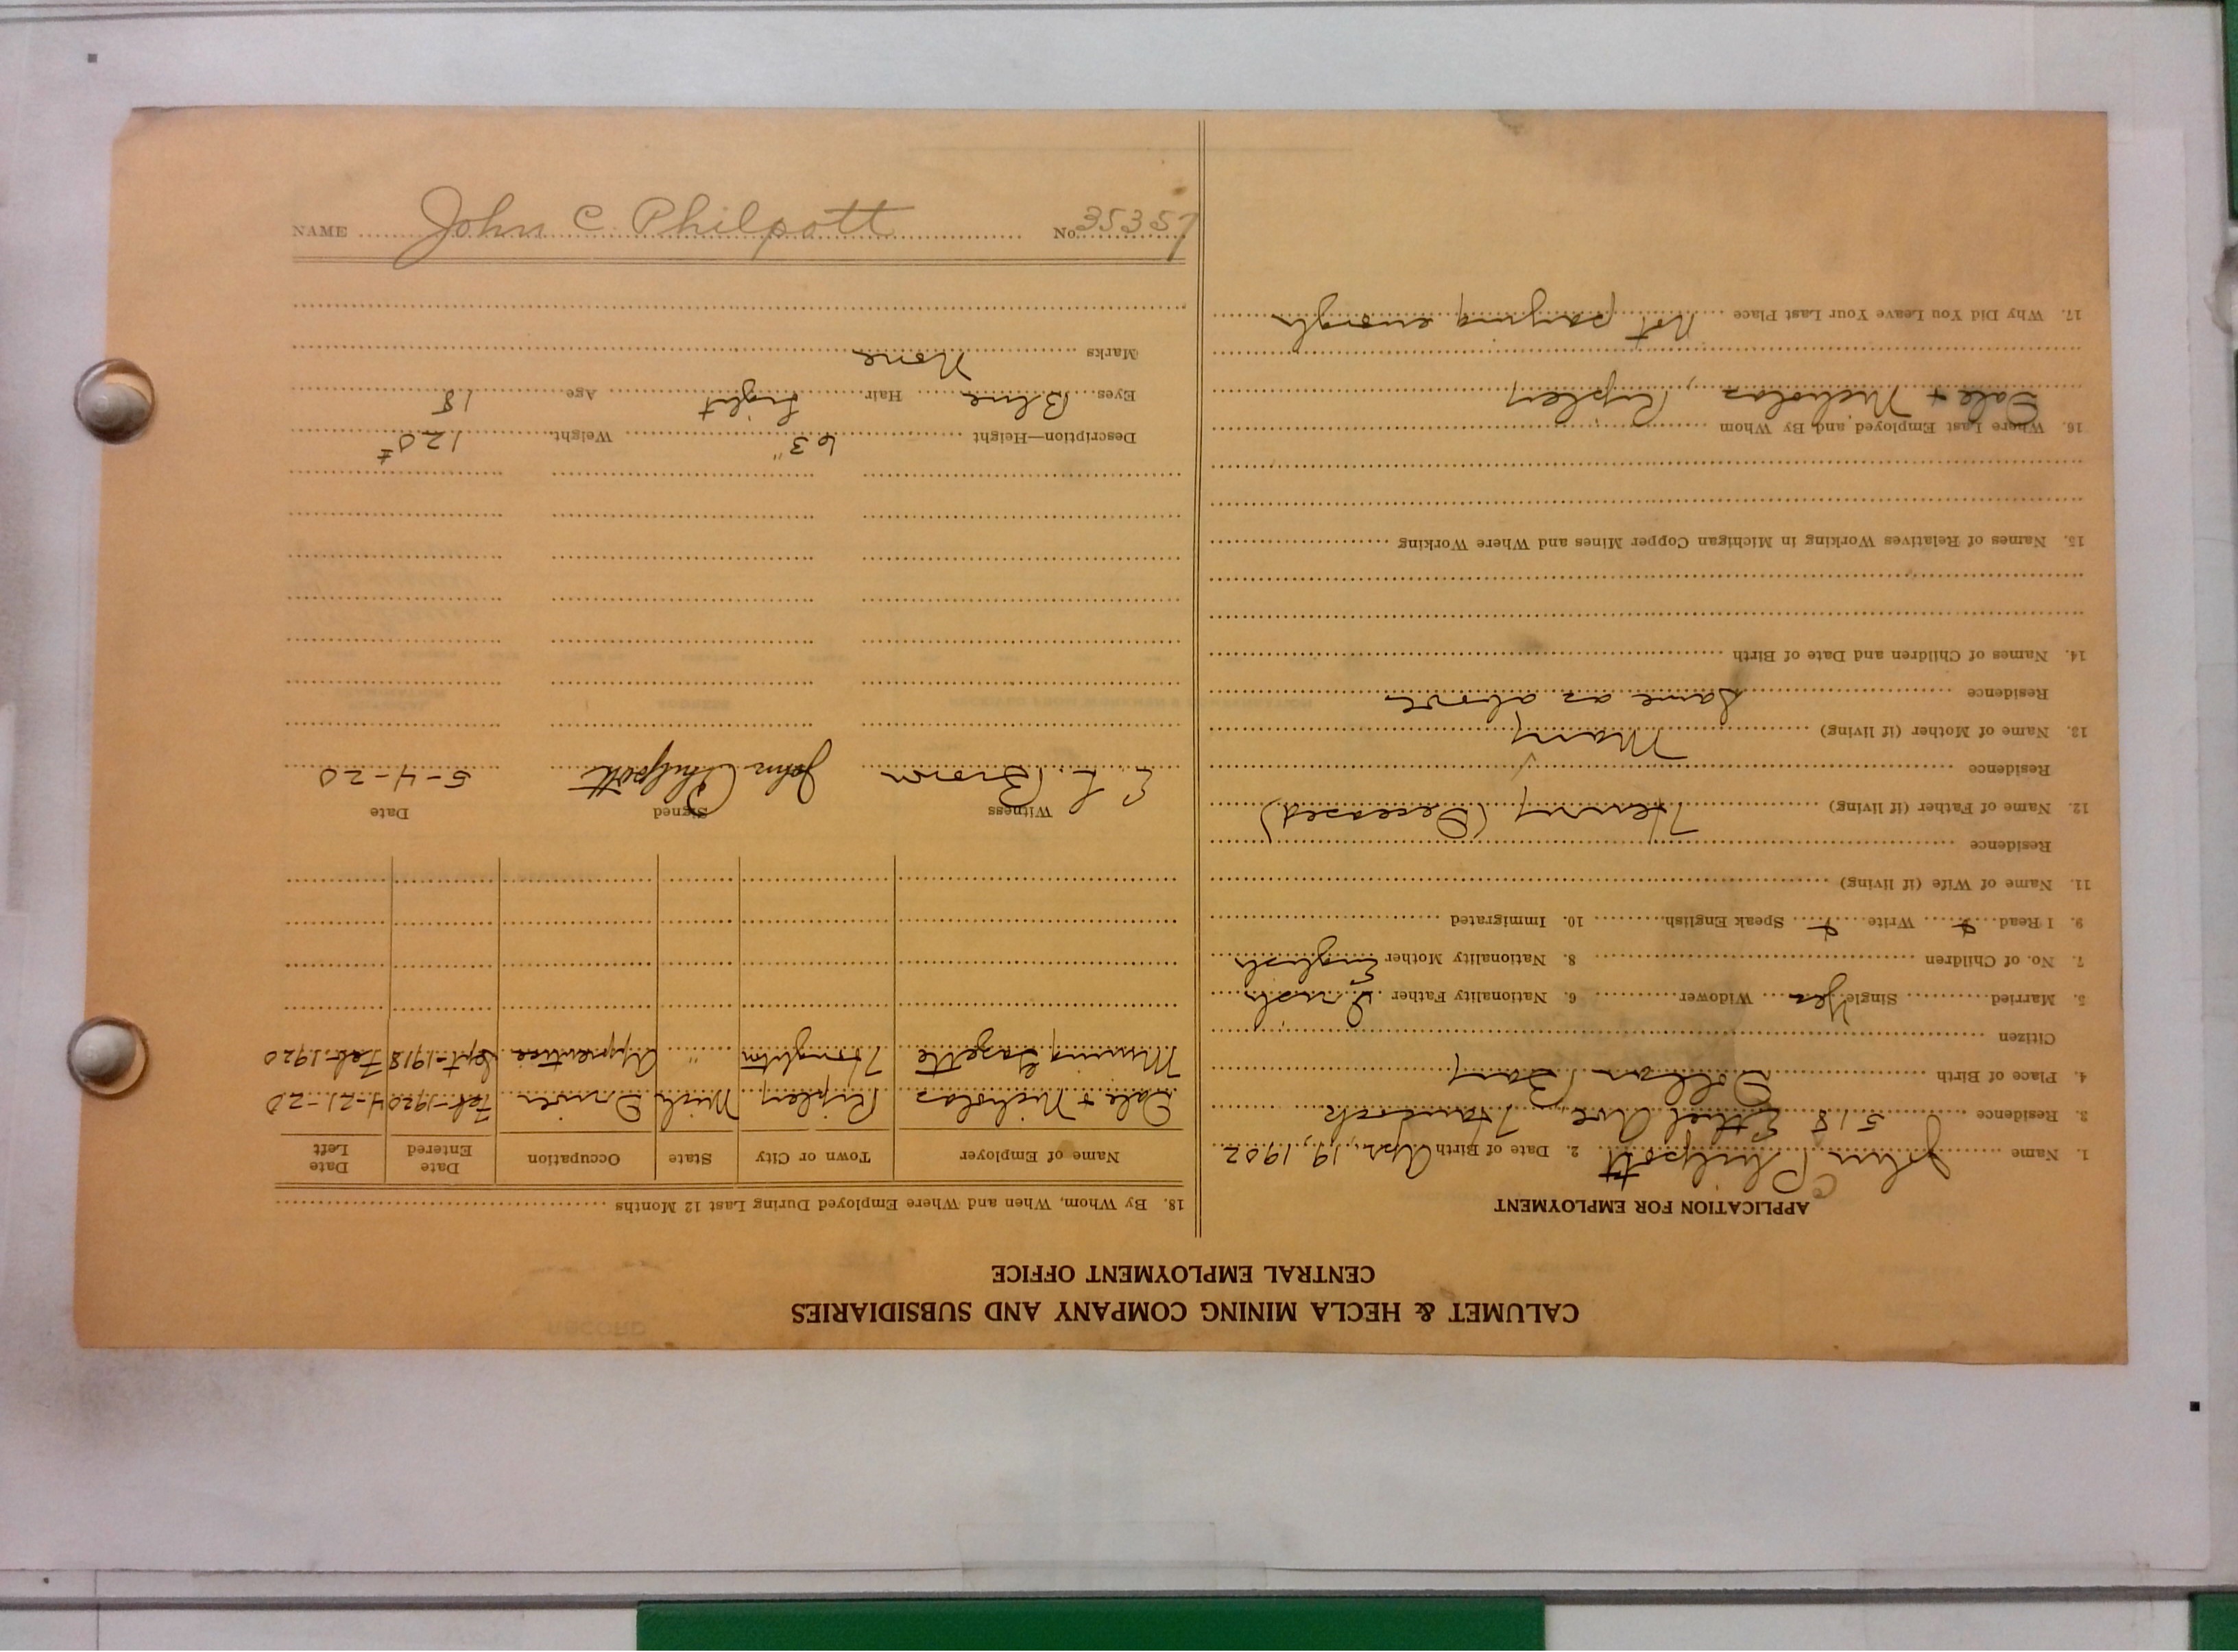 CALUMET & HECLA MINING COMPANY AND SUBSIDIARIES
CENTRAL EMPLOYMENT OFFICE
APPLICATION FOR EMPLOYMENT
1. Name John C Philpott 2. Date of Birth Apr. 19, 1902
3. Residence 518 Ethel Ave Hancock
4. Place of Birth Dollar Bay
Citizen
5. Married Single Yes Widower 6. Nationality Father
7. No. of Children 8. Nationality Mother English
9. I Read Write Speak English 10. Immigrated
11. Name of Wife (if living)
Residence
12. Name of Father (if living) Henry (Deceased)
Residence
13. Name of Mother (if living) Mary
Residence Same as above
14. Names of Children and Date of Birth
15. Names of Relatives Working in Michigan Copper Mines and Where Working
16. Where Last Employed and By Whom
Dale + Nicholas, Ripley
17. Why Did You Leave Your Last Place Not paying enough
18. By Whom, When and Where Employed During Last 12 Months
Name of Employer Town or City State Occupation Date Entered Date Left
Dale + Nicholas Ripley Mich Driver Feb-1920 4-21-20
Mining Gazette Houghton " Apprentice Sept-1918 Feb-1920
Witness Signed Date
E. L. Brown John Philpott 5-4-20
Description—Height 63" Weight 120#
Eyes Blue Hair Light Age 18
Marks None
NAME John C. Philpott No. 35357